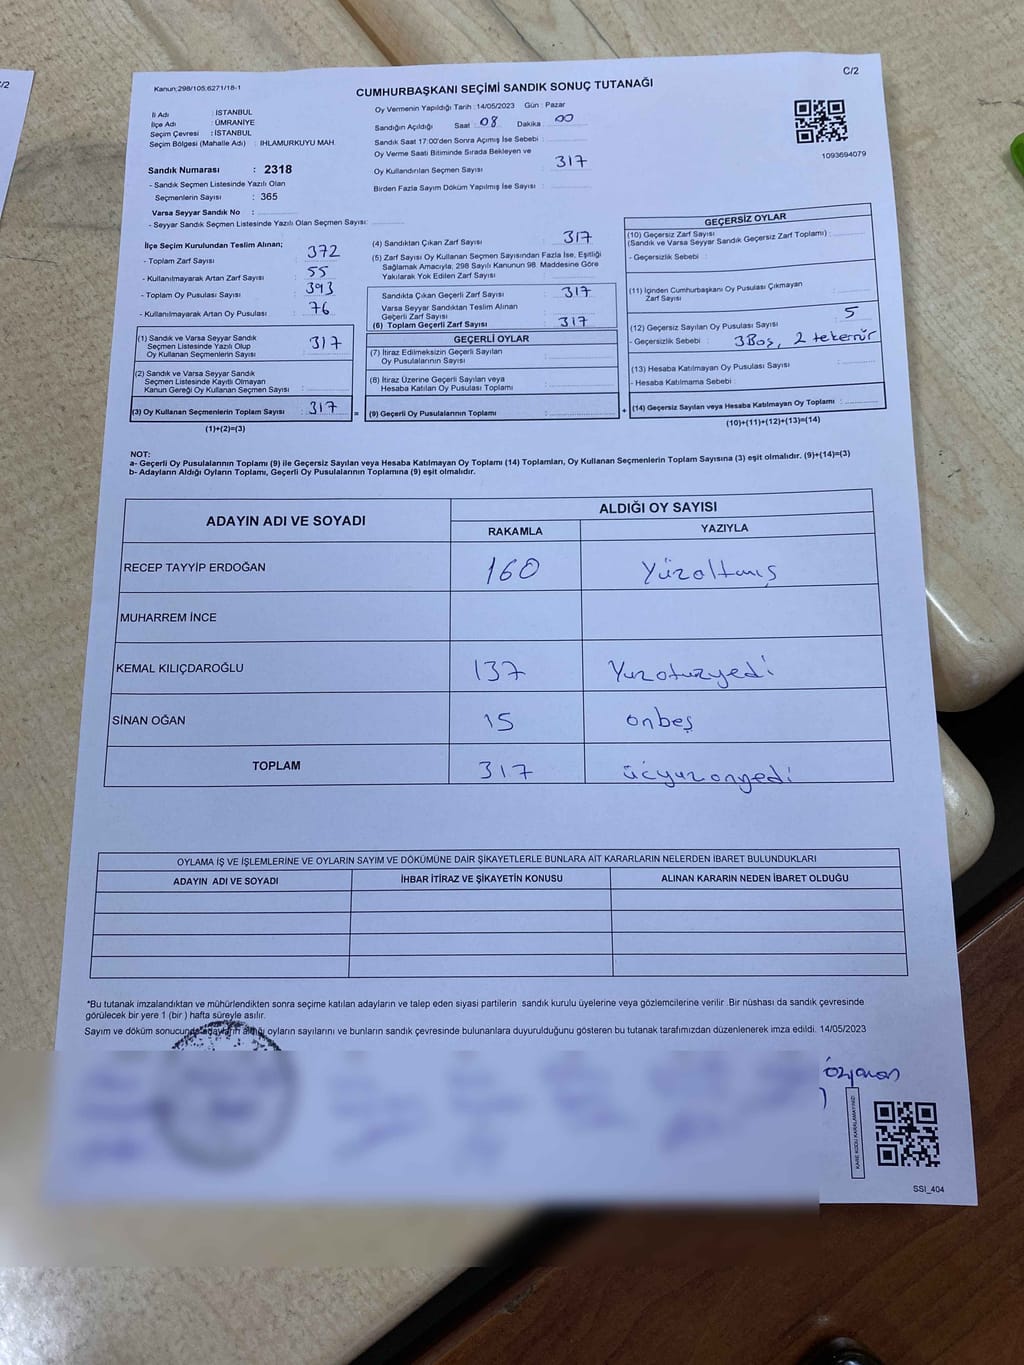 C/2
Kanun:298/105;6271/18-1
CUMHURBAŞKANI SEÇİMİ SANDIK SONUÇ TUTANAĞI
C/2
İli Adı : İSTANBUL
İlçe Adı : ÜMRANİYE
Seçim Çevresi : İSTANBUL
Seçim Bölgesi (Mahalle Adı) : IHLAMURKUYU MAH.
Sandık Numarası : 2318
- Sandık Seçmen Listesinde Yazılı Olan
Seçmenlerin Sayısı : 365
Varsa Seyyar Sandık No :
- Seyyar Sandık Seçmen Listesinde Yazılı Olan Seçmen Sayısı:
Oy Vermenin Yapıldığı Tarih : 14/05/2023 Gün : Pazar
Sandığın Açıldığı Saat : 08 Dakika : 00
Sandık Saat 17:00'den Sonra Açımış İse Sebebi :
Oy Verme Saati Bitiminde Sırada Bekleyen ve
Oy Kullandırılan Seçmen Sayısı : 317
Birden Fazla Sayım Döküm Yapılmış İse Sayısı :
1093694079
İlçe Seçim Kurulundan Teslim Alınan;
- Toplam Zarf Sayısı : 372
- Kullanılmayarak Artan Zarf Sayısı : 55
- Toplam Oy Pusulası Sayısı : 393
- Kullanılmayarak Artan Oy Pusulası : 76
(1) Sandık ve Varsa Seyyar Sandık
Seçmen Listesinde Yazılı Olup
Oy Kullanan Seçmenlerin Sayısı : 317
(2) Sandık ve Varsa Seyyar Sandık
Seçmen Listesinde Kayıtlı Olmayan
Kanun Gereği Oy Kullanan Seçmen Sayısı :
(3) Oy Kullanan Seçmenlerin Toplam Sayısı : 317 =
(1)+(2)=(3)
(4) Sandıktan Çıkan Zarf Sayısı : 317
(5) Zarf Sayısı Oy Kullanan Seçmen Sayısından Fazla İse, Eşitliği
Sağlamak Amacıyla, 298 Sayılı Kanunun 98. Maddesine Göre
Yakılarak Yok Edilen Zarf Sayısı :
Sandıkta Çıkan Geçerli Zarf Sayısı : 317
Varsa Seyyar Sandıktan Teslim Alınan
Geçerli Zarf Sayısı :
(6) Toplam Geçerli Zarf Sayısı : 317
GEÇERLİ OYLAR
(7) İtiraz Edilmeksizin Geçerli Sayılan
Oy Pusulalarının Sayısı :
(8) İtiraz Üzerine Geçerli Sayılan veya
Hesaba Katılan Oy Pusulası Toplamı :
(9) Geçerli Oy Pusulalarının Toplamı : +
GEÇERSİZ OYLAR
(10) Geçersiz Zarf Sayısı
(Sandık ve Varsa Seyyar Sandık Geçersiz Zarf Toplamı) :
- Geçersizlik Sebebi :
(11) İçinden Cumhurbaşkanı Oy Pusulası Çıkmayan
Zarf Sayısı :
(12) Geçersiz Sayılan Oy Pusulası Sayısı : 5
- Geçersizlik Sebebi : 3Boş, 2 tekerrür
(13) Hesaba Katılmayan Oy Pusulası Sayısı :
- Hesaba Katılmama Sebebi :
(14) Geçersiz Sayılan veya Hesaba Katılmayan Oy Toplamı :
(10)+(11)+(12)+(13)=(14)
NOT:
a- Geçerli Oy Pusulalarının Toplamı (9) ile Geçersiz Sayılan veya Hesaba Katılmayan Oy Toplamı (14) Toplamları, Oy Kullanan Seçmenlerin Toplam Sayısına (3) eşit olmalıdır. (9)+(14)=(3)
b- Adayların Aldığı Oyların Toplamı, Geçerli Oy Pusulalarının Toplamına (9) eşit olmalıdır.
ADAYIN ADI VE SOYADI
ALDIĞI OY SAYISI
RAKAMLA YAZIYLA
RECEP TAYYİP ERDOĞAN 160 Yüzaltmış
MUHARREM İNCE
KEMAL KILIÇDAROĞLU 137 Yuzotuzyedi
SİNAN OĞAN 15 onbeş
TOPLAM 317 üçyuzonyedi
OYLAMA İŞ VE İŞLEMLERİNE VE OYLARIN SAYIM VE DÖKÜMÜNE DAİR ŞİKAYETLERLE BUNLARA AİT KARARLARIN NELERDEN İBARET BULUNDUKLARI
ADAYIN ADI VE SOYADI İHBAR İTİRAZ VE ŞİKAYETİN KONUSU ALINAN KARARIN NEDEN İBARET OLDUĞU
*Bu tutanak imzalandıktan ve mühürlendikten sonra seçime katılan adayların ve talep eden siyasi partilerin sandık kurulu üyelerine veya gözlemcilerine verilir .Bir nüshası da sandık çevresinde
görülecek bir yere 1 (bir ) hafta süreyle asılır.
Sayım ve döküm sonucunda adayların aldığı oyların sayılarını ve bunların sandık çevresinde bulunanlara duyurulduğunu gösteren bu tutanak tarafımızdan düzenlenerek imza edildi. 14/05/2023
KARE KODU KARALAMAYINIZ!
SSİ_404